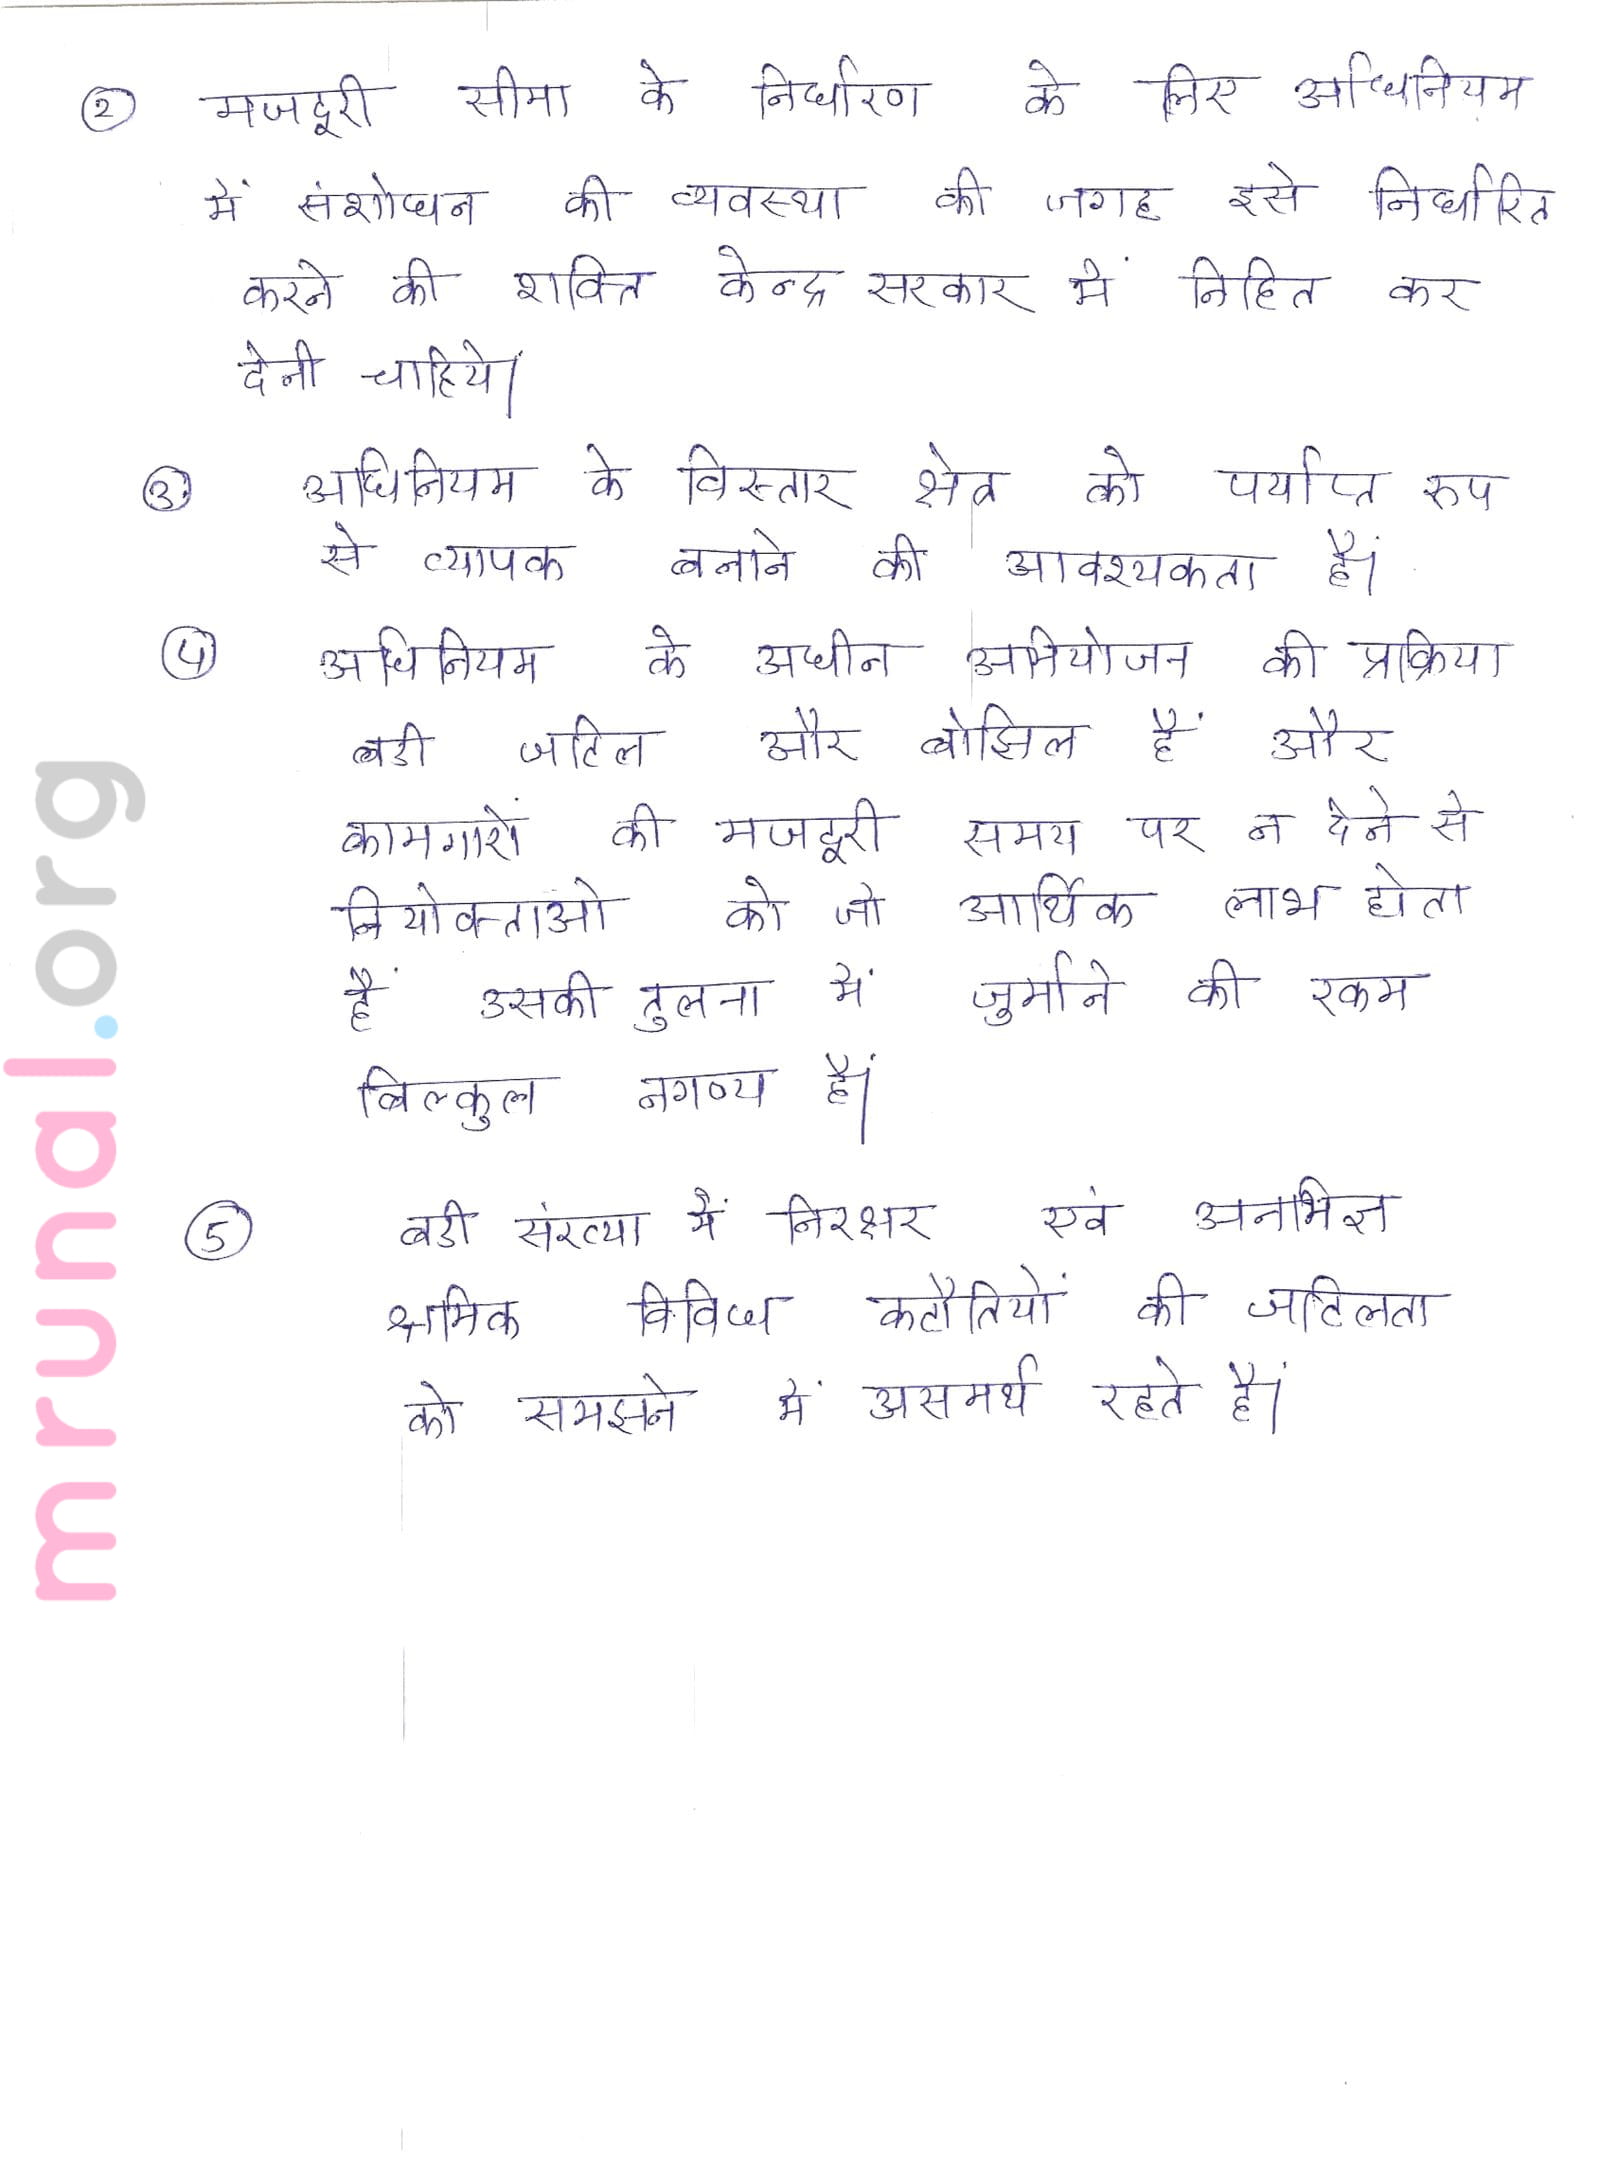 ② मजदूरी सीमा के निर्धारण के लिए अधिनियम
में संशोधन की व्यवस्था की जगह इसे निर्धारित
करने की शक्ति केन्द्र सरकार में निहित कर
देनी चाहिये।
③ अधिनियम के विस्तार क्षेत्र को पर्याप्त रूप
से व्यापक बनाने की आवश्यकता हैं।
④ अधिनियम के अधीन अभियोजन की प्रक्रिया
बडी जटिल और बोझिल हैं और
कामगारों की मजदूरी समय पर न देने से
नियोक्ताओ को जो आर्थिक लाभ होता
हैं उसकी तुलना में जुर्माने की रकम
बिल्कुल नगण्य हैं।
⑤ बडी संख्या में निरक्षर एवं अनभिज्ञ
श्रमिक विविध कटौतियों की जटिलता
को समझने में असमर्थ रहते हैं।
mrunal.org